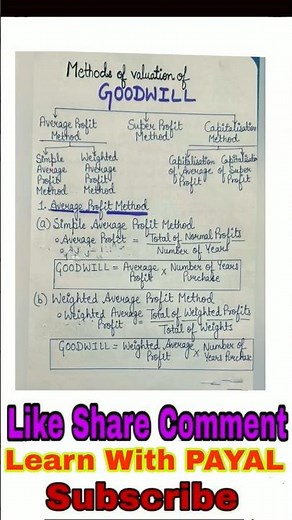 Methods of valuation of
GOODWILL
Average Profit Method
Super Profit Method
Capitalisation Method
Simple Average Profit Method
Weighted Average Profit Method
Capitalisation of Average Profit
Capitalisation of Super Profit
1. Average Profit Method
(a) Simple Average Profit Method
Average Profit = Total of Normal Profits
Number of Years
GOODWILL = Average Profit × Number of Years Purchase
(b) Weighted Average Profit Method
Weighted Average Profit Total of Weighted Profits
Total of Weights
GOODWILL = Weighted Average Profit × Number of Years Purchase
Like Share Comment
Learn With PAYAL
Subscribe